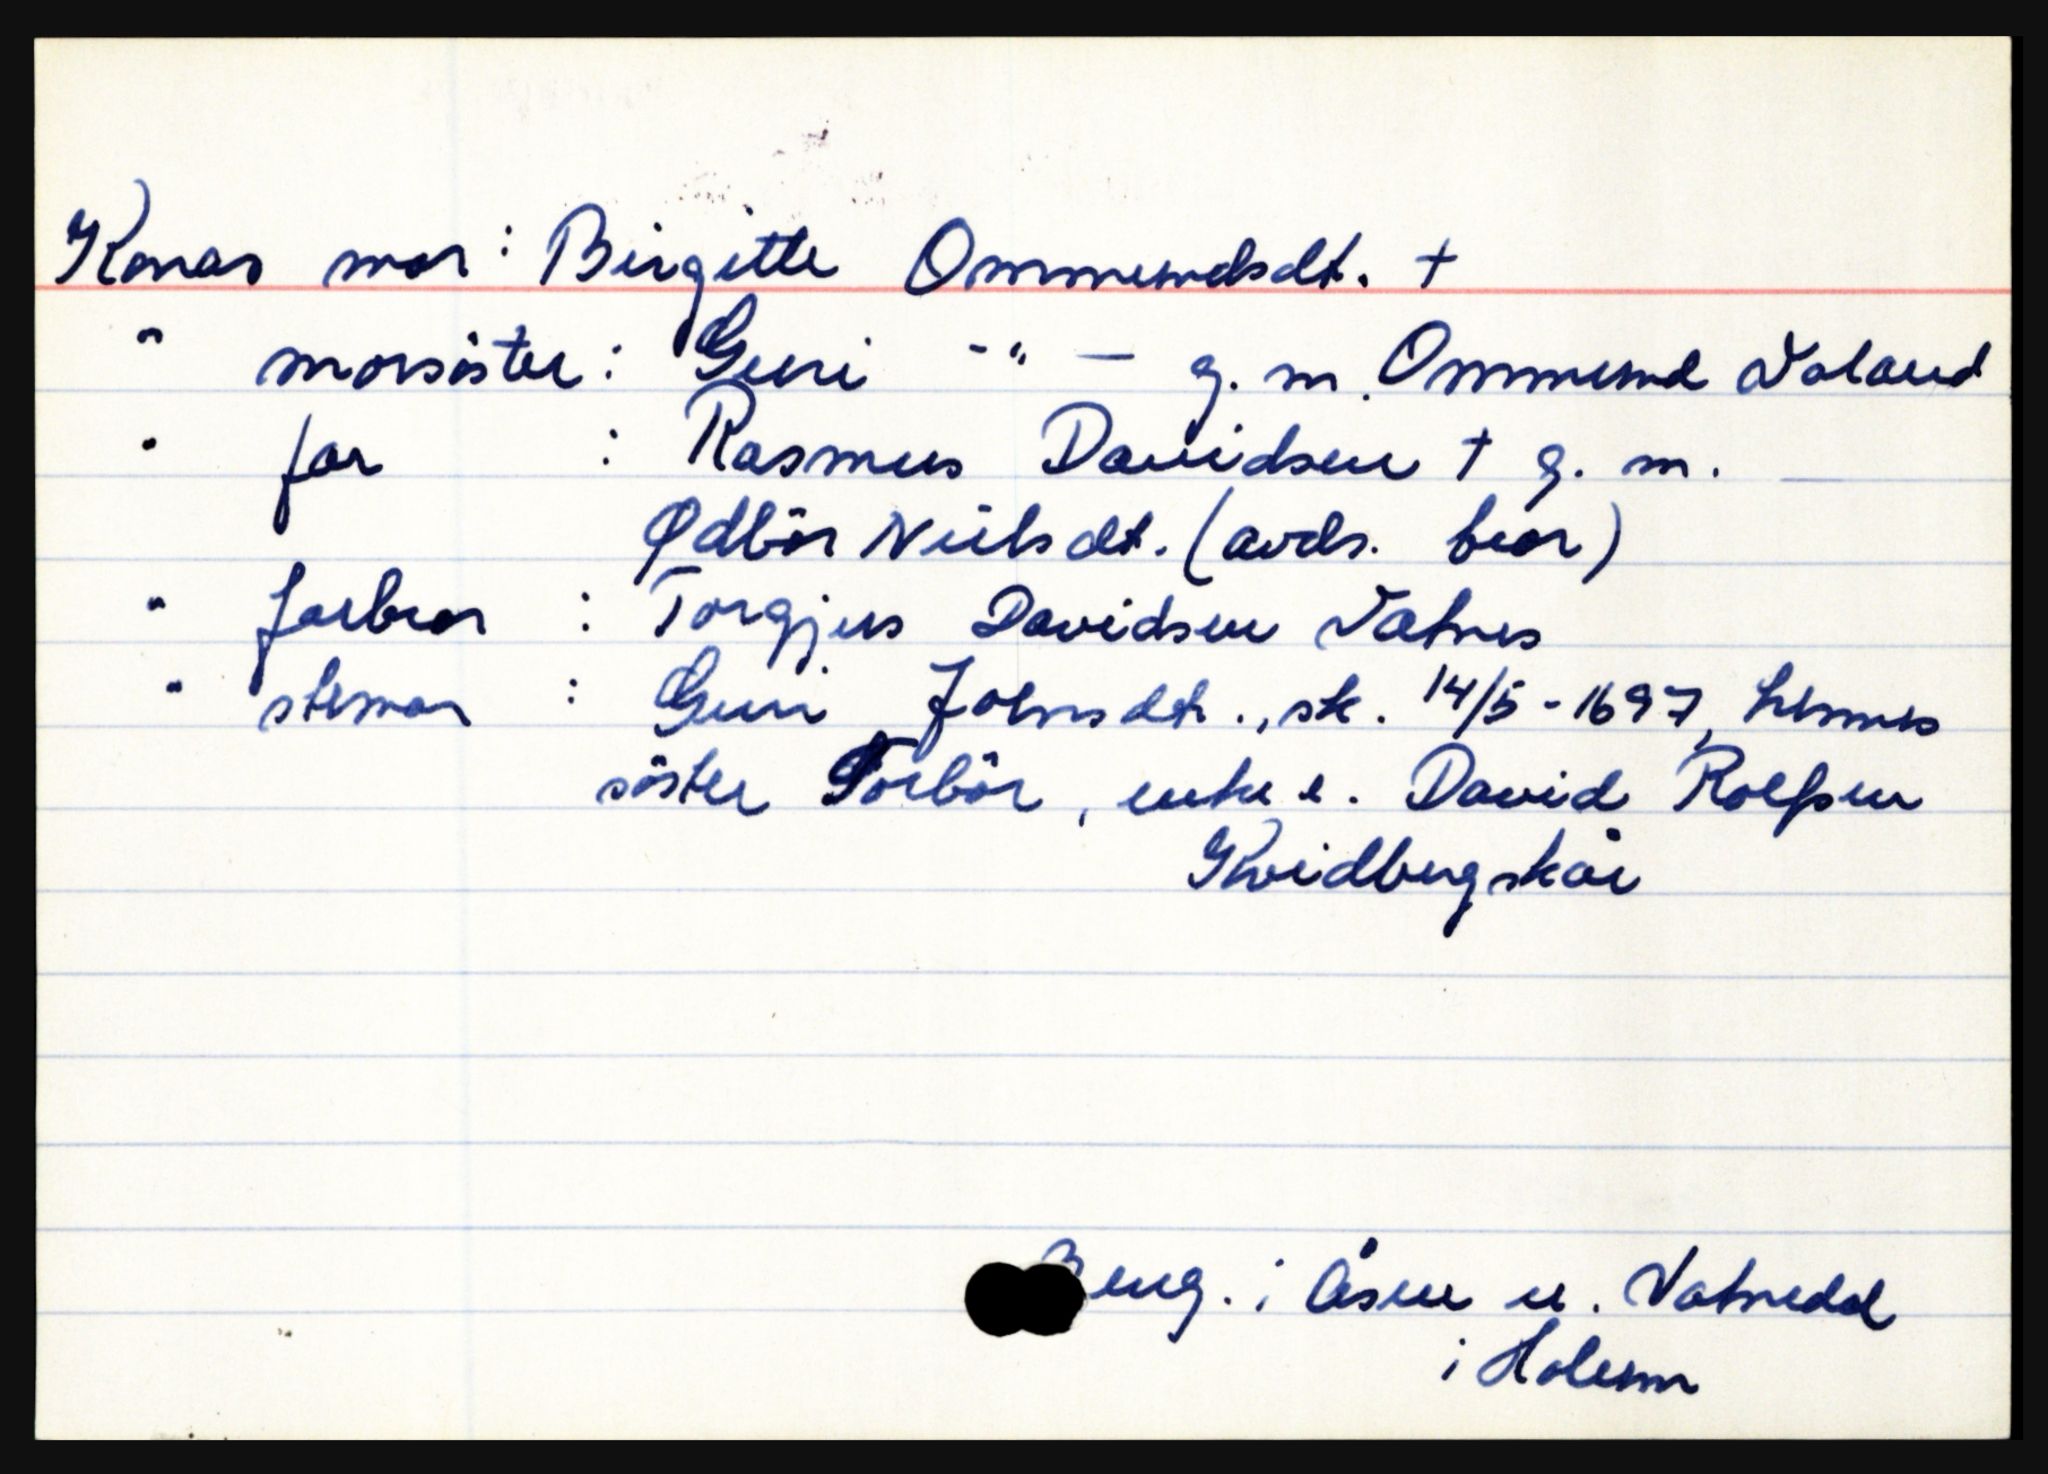 Konas mor : Birgitte Ommundsdt. +
" morsöster : Guri - " - g. m. Ommund Valand
" far : Rasmus Davidsen + g. m.
Ødbör Nielsdt. (avds. bror)
" farbror : Torgjus Davidsen Vatnes
" stemor : Guri Johnsdt., sk. 14/5 - 1697, hennes
söster Torbör, enke e. David Rolfsen
Kvidbergskår
Beng. i Åsen u. Vatnedal
i Holum